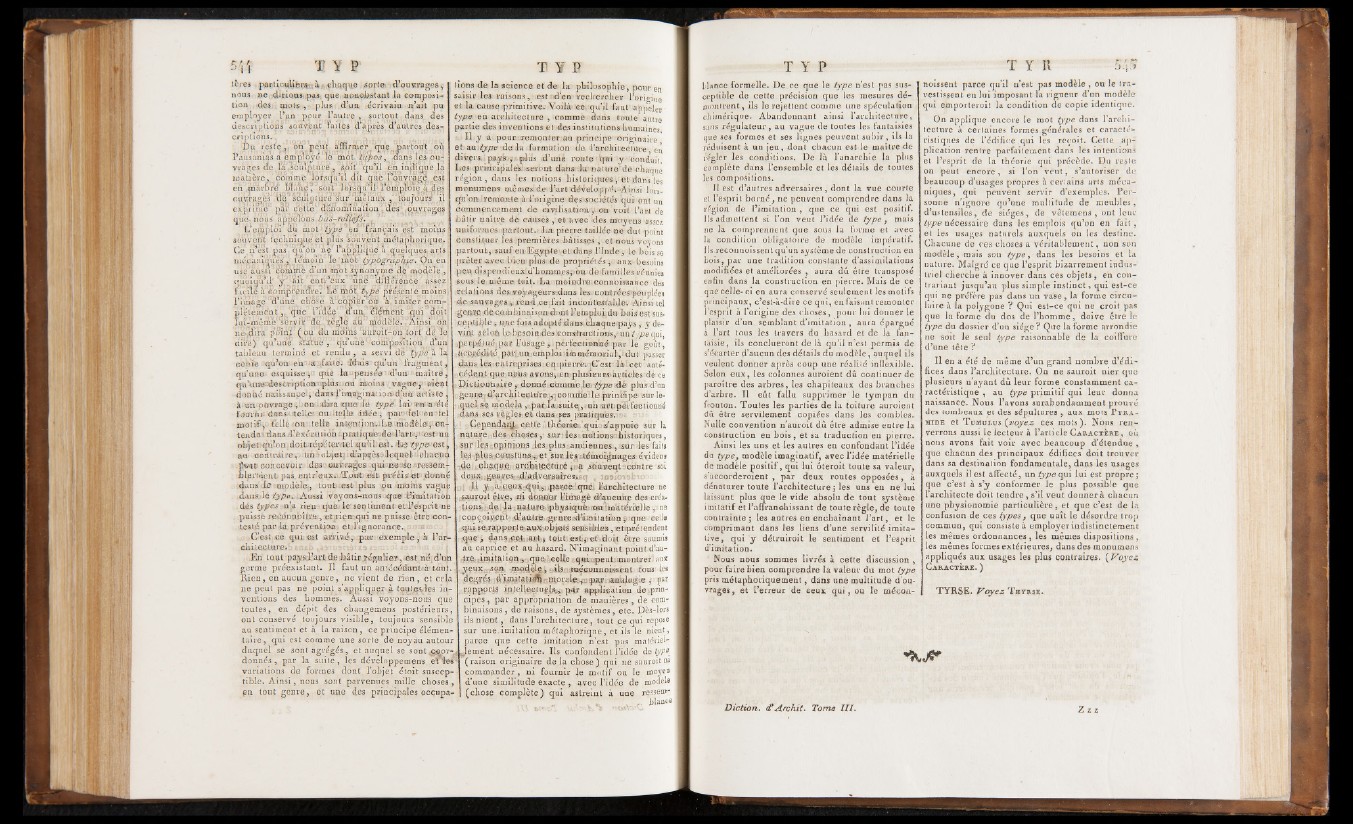 544 T Y P
tères particulières à chaque sorte d'ouvrages,
nous ne dirions pas que nonobstant la composi-
tion des mots, plus d'un écrivain n'ait pu
employer l'un pour l'autre, surtout dans des
descriptions souvent faites d'après d'autres des-
criptions.
Du reste, on peut affirmer que partout où
Pausanias a employé le mot typos, dans les ou-
vrages de la sculpture, soit qu'il en indique la
matière, comme lorsqu'il dit que l'ouvrage est
en marbre blanc, soit lorsqu'il l'emploie à des
ouvrages de sculpture sur métaux, toujours il
exprime par cette dénomination des ouvrages
que nous appelons bas-reliefs.
L'emploi du mot type en français est moins
souvent technique et plus souvent métaphorique.
Ce n'est pas qu'on ne l'applique à quelques arts
mécaniques, témoin le mot typographie. On en
use aussi comme d'un mot synonyme de modèle,
quoiqu'il y ait entr'eux une différence assez
facile à comprendre. Le mot type présente moins
l'image d'une chose à copier ou à imiter com-
plètement, que l'idée d'un élément qui doit
lui-même servir de règle au modèle. Ainsi on
ne dira point (ou du moins auroit-on tort de le
dire) qu'une statue, qu'une composition d'un
tableau terminé et rendu, a servi de type à la
copie qu'on en a faite. Mais qu'un fragment,
qu'une esquisse, que la pensée d'un maître,
qu'une description plus ou moins vague, aient
donné naissance, dans l'imagination d'un artiste,
à un ouvrage, on dira que le type lui en a été
fourni dans telle ou telle idée, par tel ou tel
motif, telle ou telle intention. Le modèle, en-
tendu dans l'exécution pratique de l'art, est un
objet qu'on doit répéter tel qu'il est. Le type est,
au contraire, un objet d'après lequel chacun
peut concevoir des ouvrages qui ne se ressem-
bleroient pas entr'eux. Tout est précis et donné
dans le modèle, tout est plus ou moins vague
dans le type. Aussi voyons-nous que l'imitation
des types n'a rien que le sentiment et l'esprit ne
puisse reconnoître, et rien qui ne puisse être con-
testé par la prévention et l'ignorance.
C'est ce qui est arrivé, par exemple, à l'ar-
chitecture.
En tout pays l'art de bâtir régulier, est né d'un
germe préexistant. Il faut un antécédent à tout.
Rien, en aucun genre, ne vient de rien, et cela
ne peut pas ne point s'appliquer à toutes les in-
ventions des hommes. Aussi voyons-nous que
toutes, en dépit des changemens postérieurs,
ont conservé toujours visible, toujours sensible
au sentiment et à la raison, ce principe élémen-
taire, qui est comme une sorte de noyau autour
duquel se sont agrégés, et auquel se sont coor-
donnés, par la suite, les développemens et les
variations de formes dont l'objet étoit suscep-
tible. Ainsi, nous sont parvenues mille choses,
en tout genre, et une des principales occupa-
T Y P
tions de la science et de la philosophie, pour en
saisir les raisons, est d'en rechercher l'origine
et la cause primitive. Voilà ce qu'il faut appeler
type en architecture, comme dans toute autre
partie des inventions et des institutions humaines.
Il y a pour remonter au principe originaire,
et au type de la formation de l'architecture, en
divers pays, plus d'une route qui y conduit.
Les principales seront dans la nature de chaque
région, dans les notions historiques, et dans les
monumens mêmes de l'art développé. Ainsi lors-
qu'on remonte à l'origine des sociétés qui ont un
commencement de civilisation, on voit l'art de
bâtir naître de causes, et avec des moyens assez
uniformes partout. La pierre taillée ne dut point
constituer les premières bâtisses, et nous voyons
partout, sauf en Egypte et dans l'Inde, le bois se
prêter avec bien plus de propriétés, aux besoins
peu dispendieux d'hommes, ou de familles réunies
sous le même toit. La moindre connoissance des
relations des voyageurs dans les contrées peuplées
de sauvages, rend ce fait incontestable. Ainsi tel
genre de combinaison dont l'emploi du bois est sus-
ceptible, une fois adopté dans chaque pays, y de-
vint selon le besoin des constructions, un type qui,
perpétué par l'usage, perfectionné par le goût,
accrédité par un emploi immémorial, dut passer
dans les entreprises en pierre. C'est là cet anté-
cédent que nous avons, en plusieurs articles de ce
Dictionnaire, donné comme le type de plus d'un
genre d'architecture, comme le principe sur le-
quel se modela, par la suite, un art perfectionné
dans ses règles et dans ses pratiques.
Cependant cette théorie qui s'appuie sur la
nature des choses, sur les notions historiques,
sur les opinions les plus anciennes, sur les faits
les plus constans, et sur les témoignages évidens
de chaque architecture, a souvent contre soi
deux genres d'adversaires.
Il y a ceux qui, parce que l'architecture ne
sauroit être, ni donner l'image d'aucune des créa-
tions de la nature physique ou matérielle, ne
conçoivent d'autre genre d'imitation, que celle
qui se rapporte aux objets sensibles, et prétendent
que, dans cet art, tout est, et doit être soumis
au caprice et au hasard. N'imaginant point d'au-
tre imitation, que celle qui peut montrer aux
yeux son modèle, ils méconnoissent tous les
degrés d'imitation morale, par analogie, par
rapports intellectuels, par application de prin-
cipes, par appropriation de manières, de com-
binaisons, de raisons, de systèmes, etc. Dès-lors
ils nient, dans l'architecture, tout ce qui repose
sur une imitation métaphorique, et ils le nient,
parce que cette imitation n'est pas matériel-
lement nécessaire. Ils confondent l'idée de type
(raison originaire de la chose) qui ne sauroit ni
commander, ni fournir le motif ou le moyen
d'une similitude exacte, avec l'idée de modèle
(chose complète) qui astreint à une ressem-
blance
T Y P
blance formelle. De ce que le type n'est pas sus-
ceptible de cette précision que les mesures dé-
montrent, ils le rejettent comme une spéculation
chimérique. Abandonnant ainsi l'architecture,
sans régulateur, au vague de toutes les fantaisies
que ses formes et ses lignes peuvent subir, ils la
réduisent à un jeu, dont chacun est le maître de
régler les conditions. De là l'anarchie la plus
complète dans l'ensemble et les détails de toutes
les compositions.
Il est d'autres adversaires, dont la vue courte
et l'esprit borné, ne peuvent comprendre dans la
région de l'imitation, que ce qui est positif.
Ils admettent si l'on veut l'idée de type, mais
ne la comprennent que sous la forme et avec
la condition obligatoire de modèle impératif.
Ils reconnoissent qu'un système de construction en
bois, par une tradition constante d'assimilations
modifiées et améliorées, aura dû être transposé
enfin dans la construction en pierre. Mais de ce
que celle-ci en aura conservé seulement les motifs
principaux, c'est-à-dire ce qui, en faisant remonter
l'esprit à l'origine des choses, pour lui donner le
plaisir d'un semblant d'imitation, aura épargné
à l'art tous les travers du hasard et de la fan-
taisie, ils concluent de là qu'il n'est permis de
s'écarter d'aucun des détails du modèle, auquel ils
veulent donner après coup une réalité inflexible.
Selon eux, les colonnes auroient dû continuer de
paroître des arbres, les chapiteaux des branches
d'arbre. Il eût fallu supprimer le tympan du
fronton. Toutes les parties de la toiture auroient
dû être servilement copiées dans les combles.
Nulle convention n'auroit dû être admise entre la
construction en bois, et sa traduction en pierre.
Ainsi les uns et les autres en confondant l'idée
du type, modèle imaginatif, avec l'idée matérielle
de modèle positif, qui lui ôteroit toute sa valeur,
s'accorderoient, par deux routes opposées, à
dénaturer toute l'architecture; les uns en ne lui
laissant plus que le vide absolu de tout système
imitatif et l'affranchissant de toute règle, de toute
contrainte; les autres en enchaînant l'art, et le
comprimant dans les liens d'une servilité imita-
tive, qui y détruiroit le sentiment et l'esprit
d'imitation.
Nous nous sommes livrés à cette discussion,
pour faire bien comprendre la valeur du mot type
pris métaphoriquement, dans une multitude d'ou-
vrages, et l'erreur de ceux qui, ou le mécon-
Diction. d'Archit. Tome III.
T Y R 545
noissent parce qu'il n'est pas modèle, ou le tra-
vestissent en lui imposant la rigueur d'un modèle
qui emporteroit la condition de copie identique.
On applique encore le mot type dans l'archi-
tecture à certaines formes générales et caracté-
ristiques de l'édifice qui les reçoit. Cette ap-
plication rentre parfaitement dans les intentions
et l'esprit de la théorie qui précède. Du reste
on peut encore, si l'on veut, s'autoriser de
beaucoup d'usages propres à certains arts méca-
niques, qui peuvent servir d'exemples. Per-
sonne n'ignore qu'une multitude de meubles,
d'ustensiles, de siéges, de vêtemens, ont leur
type nécessaire dans les emplois qu'on en fait,
et les usages auxquels on les destine.
Chacune de ces choses a véritablement, non son
modèle, mais son type, dans les besoins et la
nature. Malgré ce que l'esprit bizarrement indus-
triel cherche à innover dans ces objets, en con-
trariant jusqu'au plus simple instinct, qui est-ce
qui ne préfère pas dans un vase, la forme circu-
laire à la polygone? Qui est-ce qui ne croit pas
que la forme du dos de l'homme, doive être le
type du dossier d'un siége? Que la forme arrondie
ne soit le seul type raisonnable de la coiffure
d'une tête?
Il en a été de même d'un grand nombre d'édi-
fices dans l'architecture. On ne sauroit nier que
plusieurs n'ayant dû leur forme constamment ca-
ractéristique, au type primitif qui leur donna
naissance. Nous l'avons surabondamment prouvé
des tombeaux et des sépultures, aux mots PYRA-
MIDE et TUMULUS (voyez ces mots). Nous ren-
verrons aussi le lecteur à l'article CARACTÈRE, où
nous avons fait voir avec beaucoup d'étendue,
que chacun des principaux édifices doit trouver
dans sa destination fondamentale, dans les usages
auxquels il est affecté, un type qui lui est propre;
que c'est à s'y conformer le plus possible que
l'architecte doit tendre, s'il veut donner à chacun
une physionomie particulière, et que c'est de la
confusion de ces types, que naît le désordre trop
commun, qui consiste à employer indistinctement
les mêmes ordonnances, les mêmes dispositions,
les mêmes formes extérieures, dans des monumens
appliqués aux usages les plus contraires. (Voyez
CARACTÈRE.)
TYRSE. Voyez THYRSE.
Z z z